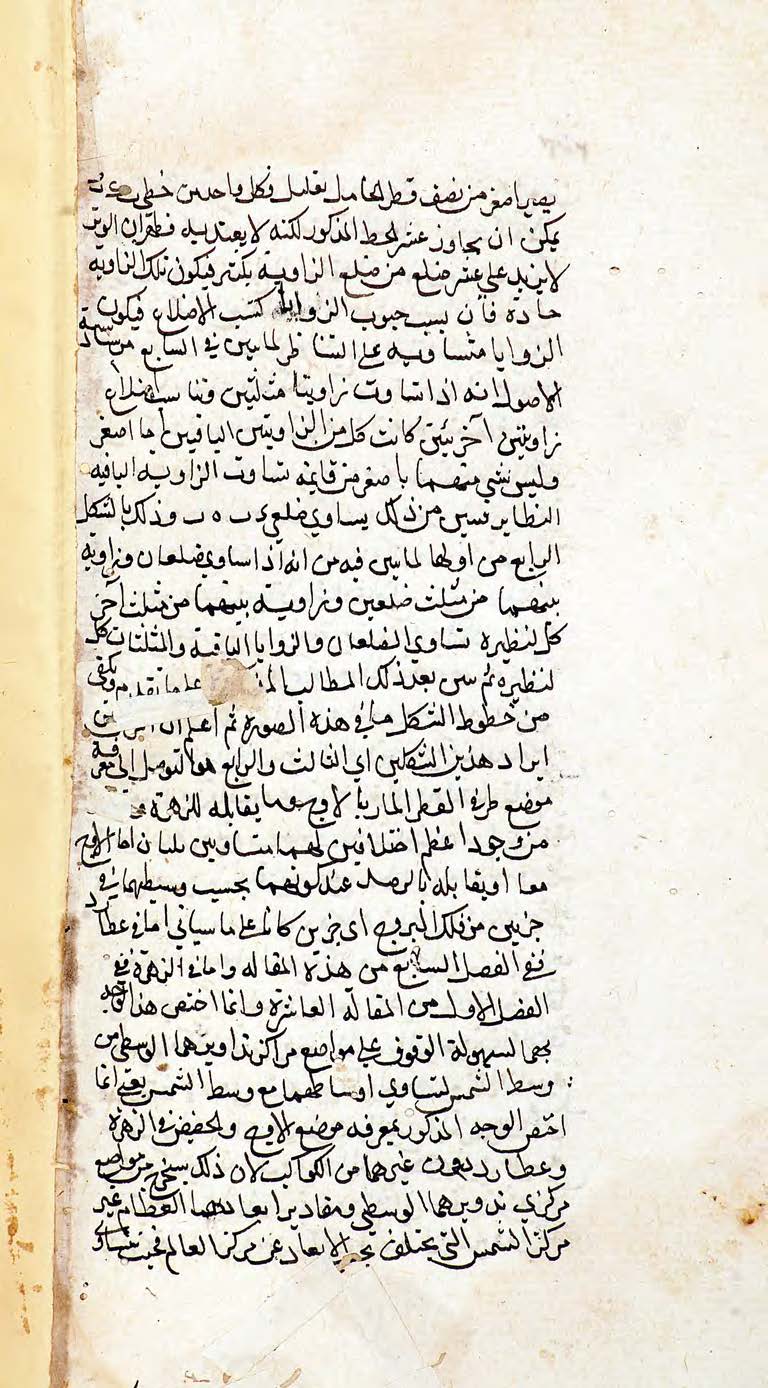 يصير اصغر من نصف قطر الحامل بقليل فكل واحد من خطي
يمكن ان يجاوز عشر الخط المذكور لكنه لا يعتد به فظهر ان الوتر
لا يزيد علي عشر ضلع من ضلع الزاوية بكثير فيكون تلك الزاوية
حادة فان نسب جيوب الزوايا كنسب الاضلاع فيكون
الزوايا متساوية علي التناظر لما بين في السابع من سادسة
الاصول انه اذا تساوت زاويتا مثلثين وتناسب اضلاع
زاويتين آخريتين كانت كل من الزاويتين الباقيتين اما اصغر
وليس شي منهما باصغر من قايمة تساوت الزاوية الباقية
النظاير فتبين من ذلك يساوي ضلعي د ب ه ب وذلك بالشكل
الرابع من اولها لما بين فيه من انه اذا ساوي ضلعان وزاوية
بينهما من مثلث ضلعين وزاوية بينهما من مثلث آخر
كل لنظيره تساوي الضلعان والزوايا الباقية والمثلثات كل
لنظيره ثم بين بعد ذلك المطالب علي ما تقدم ويكفي
من خطوط الشكل ما في هذه الصورة ثم اعلم ان
ايراد هذين الشكلين اي الثالث والرابع هو التوصل الي معرفة
موضع طرفي القطر المار بالاوج وما يقابله للزهرة
من وجود اعظم اختلافين لهما متساويين يليان اما الاوج
معا او يقابله بالرصد عند كونهما بحسب وسيطهما في
جزين من فلك البروج اي جزين كانا علي ما سياتي اما في عطارد
ففي الفصل السابع من هذه المقاله واما في الزهرة ففي
الفصل الاول من المقالة العاشرة وانما اختص هذا الوجه
بهما لسهولة الوقوف علي مواضع مراكز تداويرهما الوسطي من
وسط الشمس لتساوي اوساطهما مع وسط الشمس يعني انما
اختص الوجه المذكور بمعرفة موضع الاوج والحضيض في الزهرة
وعطارد دون غيرهما من الكواكب لان ذلك يستخرج من مواضع
مركزي تدويرهما الوسطي ومقادير ابعادهما العظام عن
مركز الشمس التي يختلف بحسب الابعاد عن مركز العالم فحيث